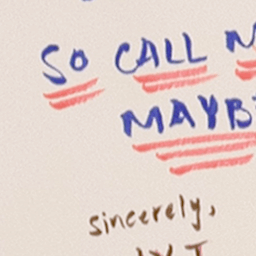 SO CALL
MAYB
sincerely,